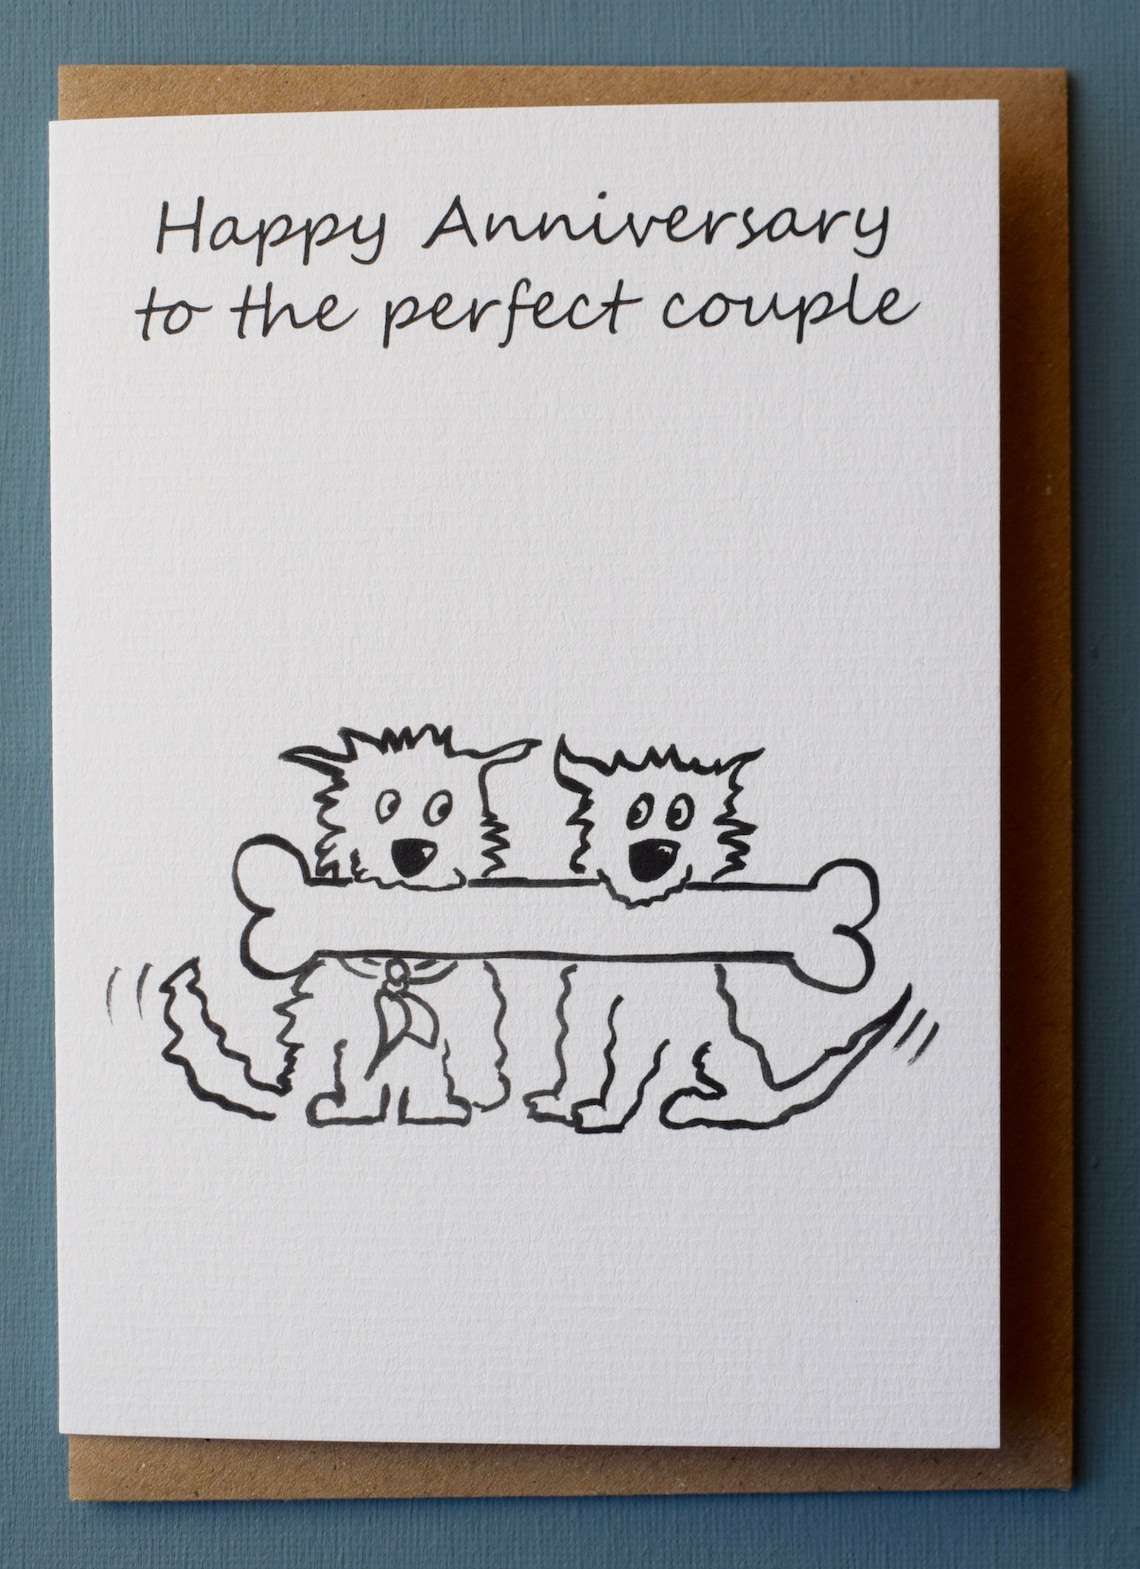 Happy Anniversary
to the perfect couple